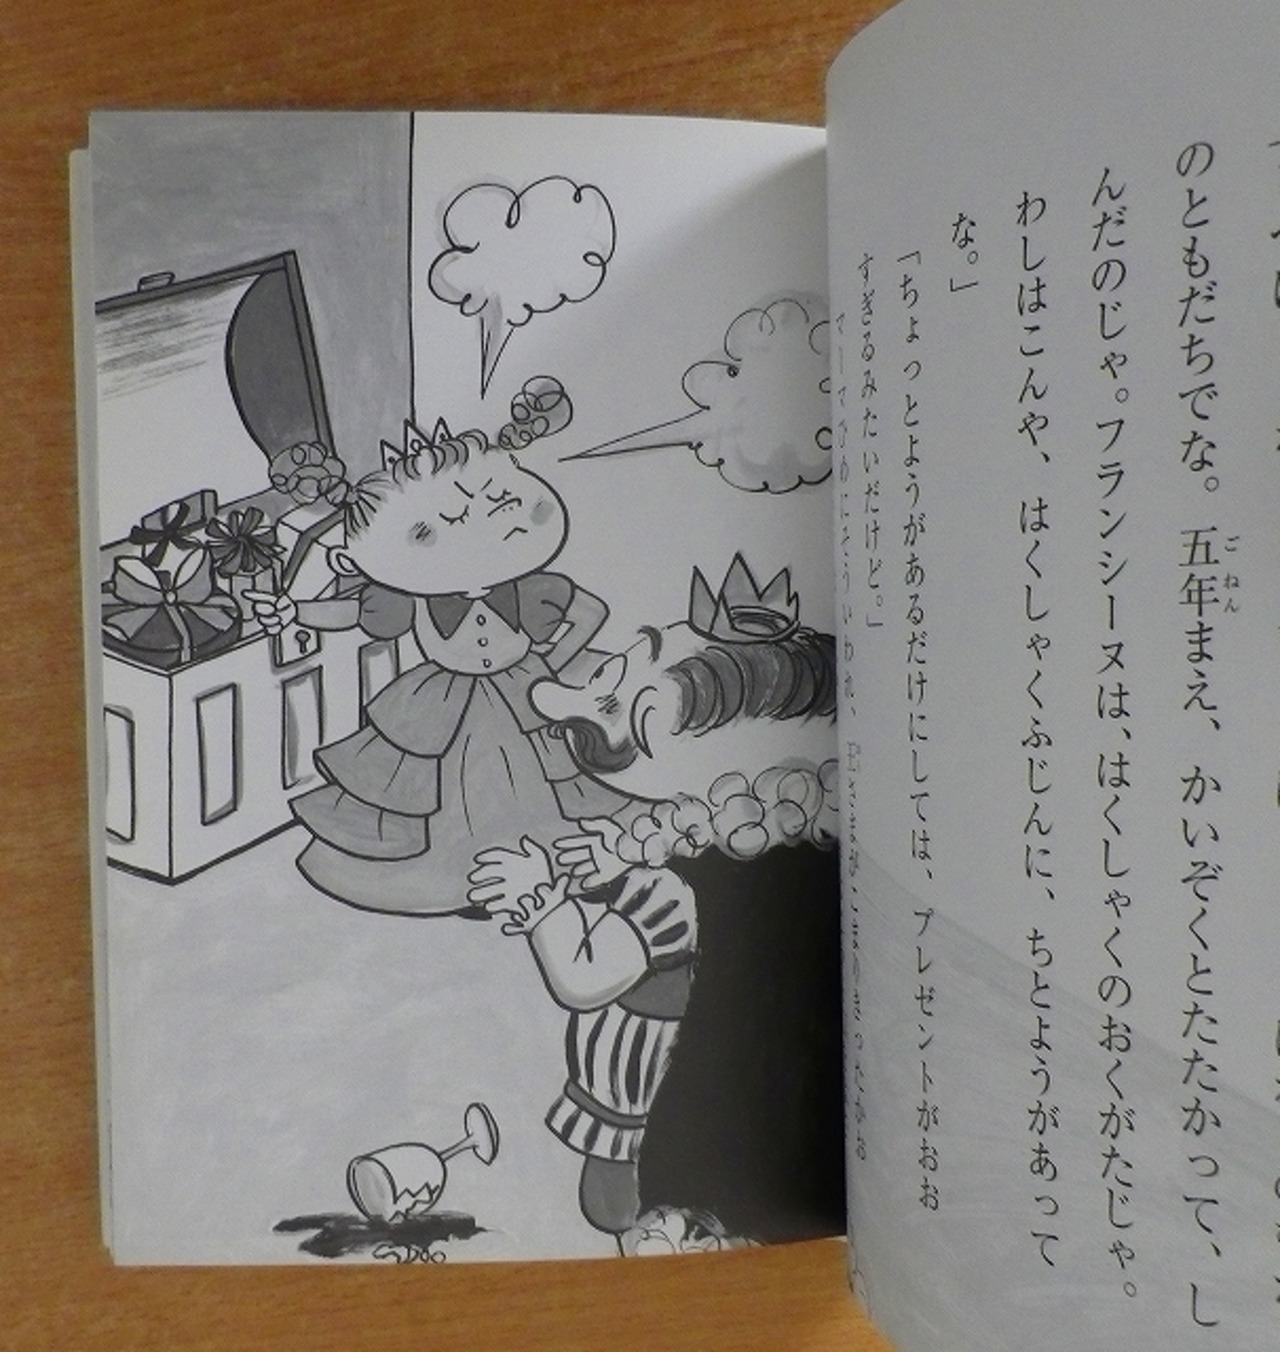 のともだちでな。五年まえ、かいぞくとたたかって、し
んだのじゃ。フランシーヌは、はくしゃくのおくがたじゃ。
わしはこんや、はくしゃくふじんに、ちとようがあって
な。」
「ちょっとようがあるだけにしては、プレゼントがおお
すぎるみたいだけど。」